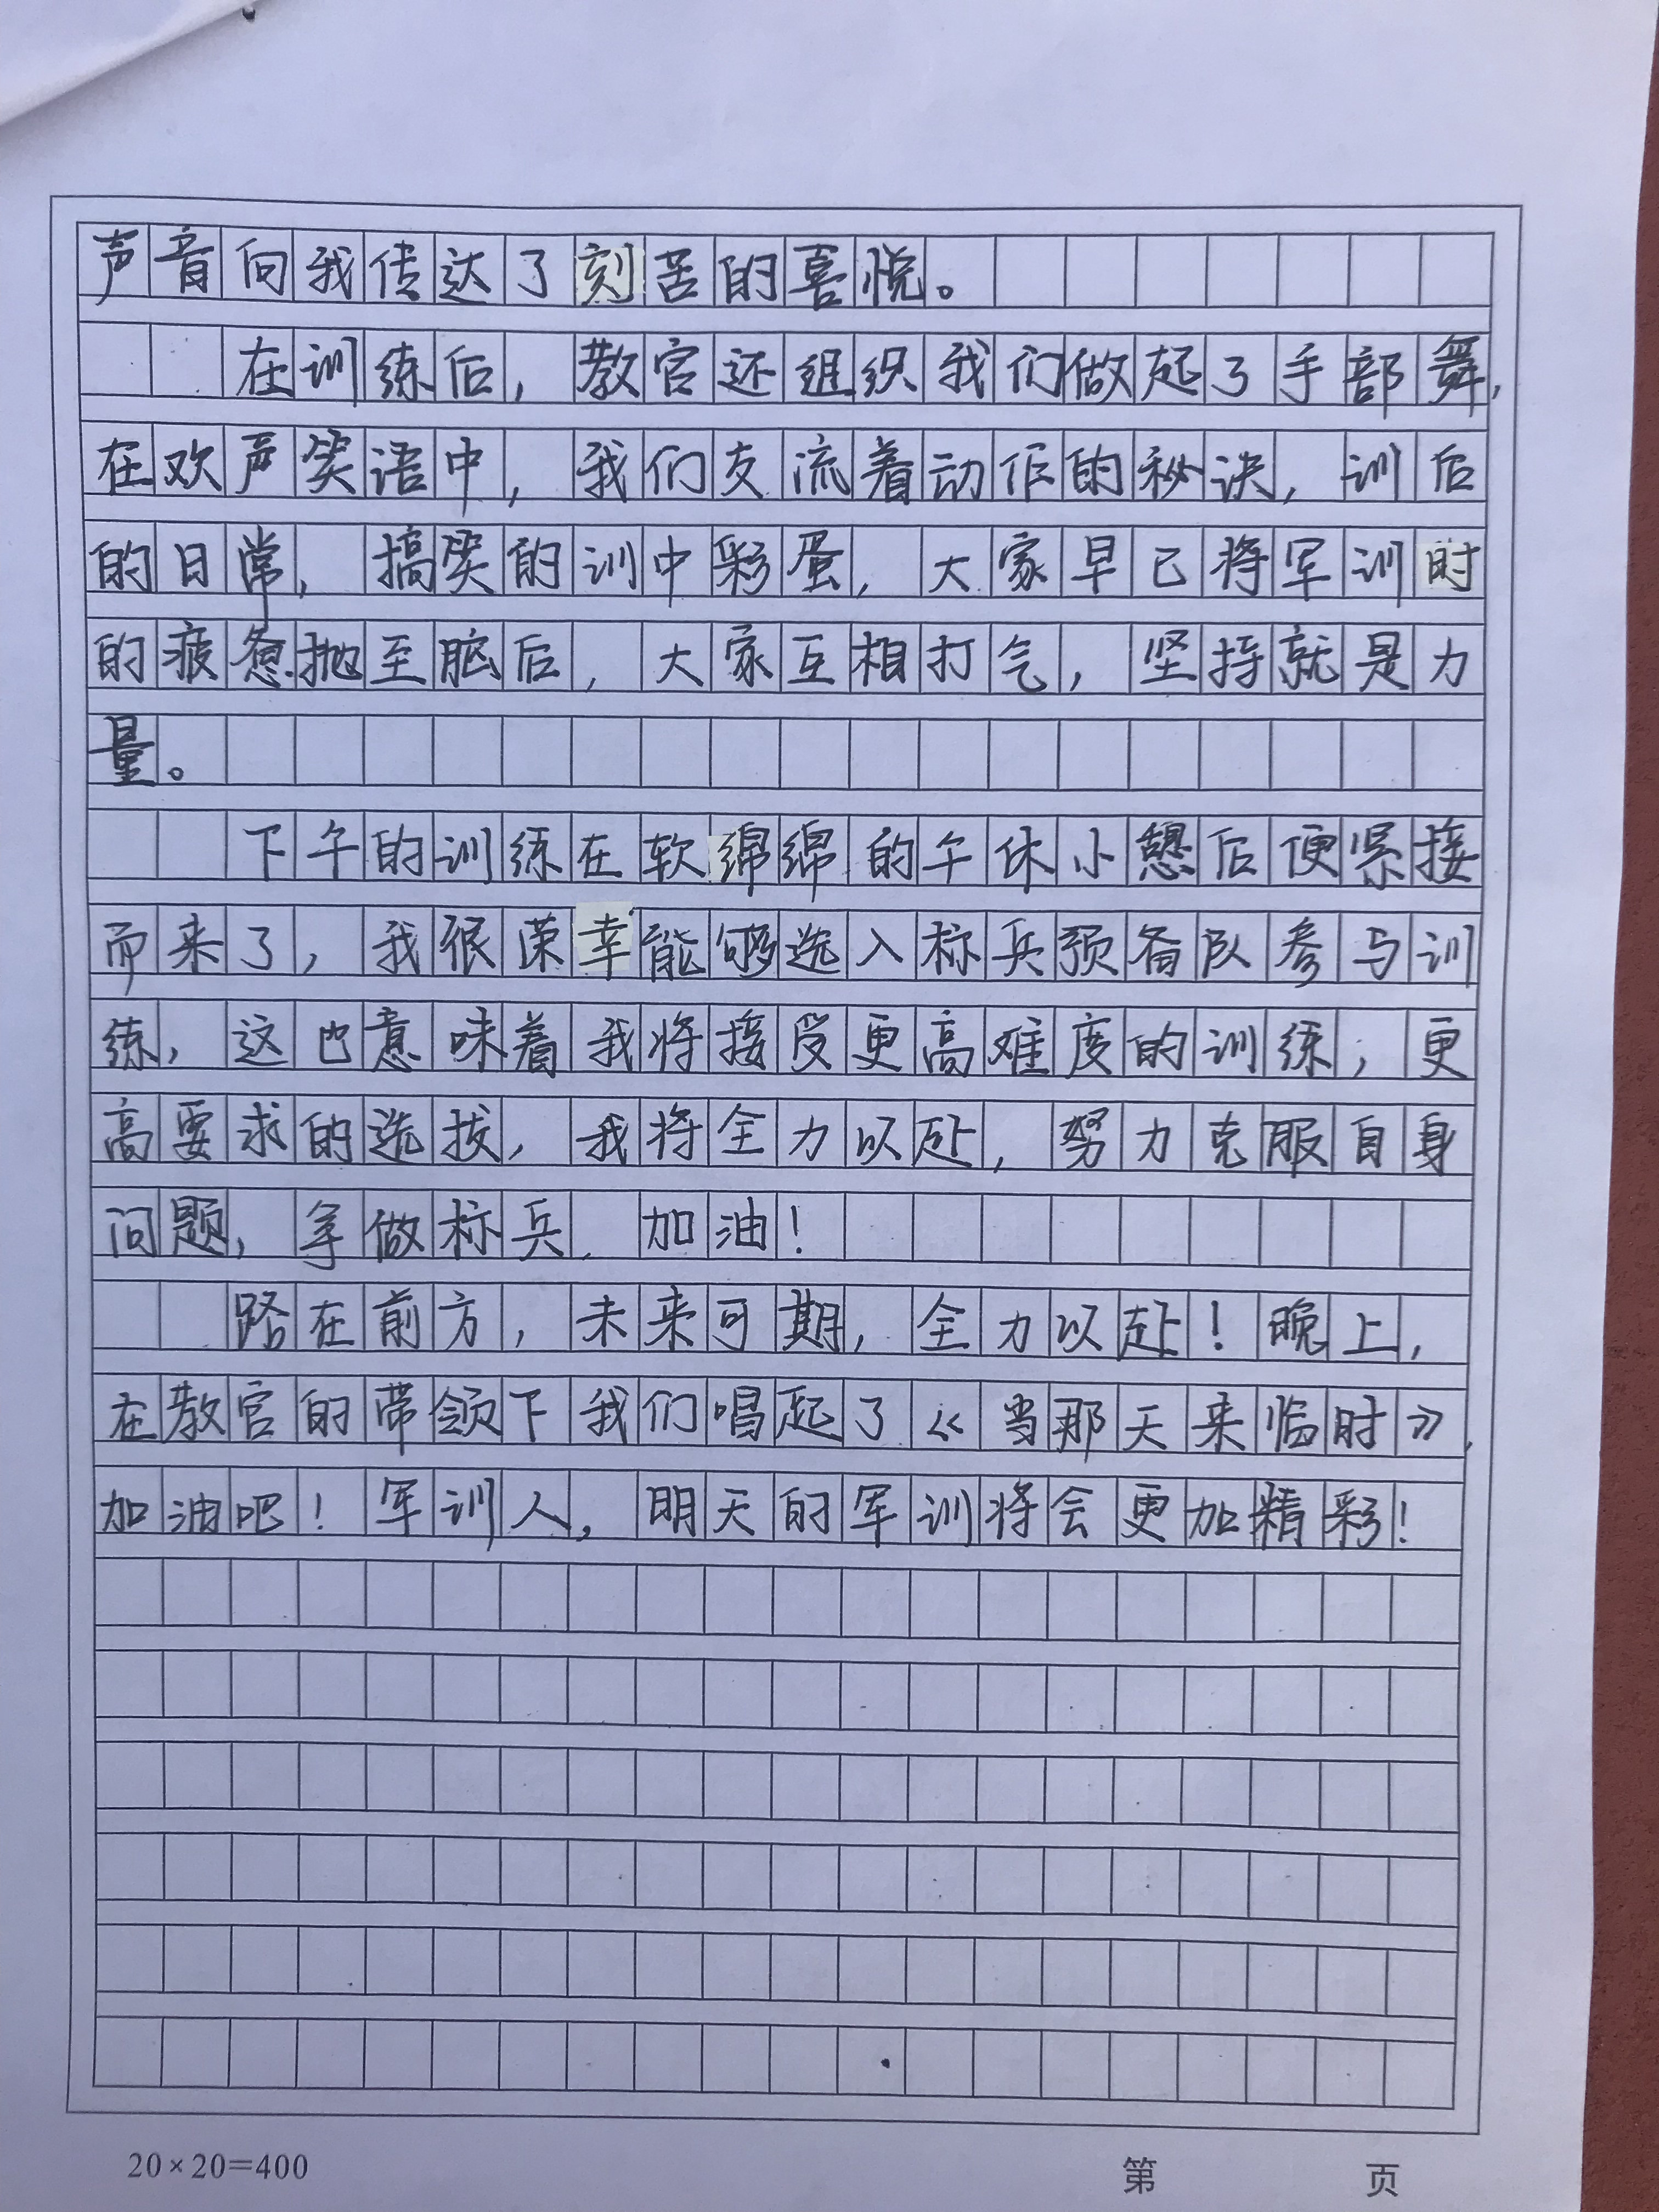 声音向我传达了刻苦的喜悦。
在训练后，教官还组织我们做起了手部舞，
在欢声笑语中，我们交流着动作的秘诀，训后
的日常，搞笑的训中彩蛋，大家早已将军训时
的疲惫抛至脑后，大家互相打气，坚持就是力
量。
下午的训练在软绵绵的午休小憩后便紧接
而来了，我很荣幸能够选入标兵预备队参与训
练，这也意味着我将接受更高难度的训练，更
高要求的选拔，我将全力以赴，努力克服自身
问题，争做标兵，加油！
路在前方，未来可期，全力以赴！晚上，
在教官的带领下我们唱起了《当那天来临时》，
加油吧！军训人，明天的军训将会更加精彩！
20×20=400
第 页